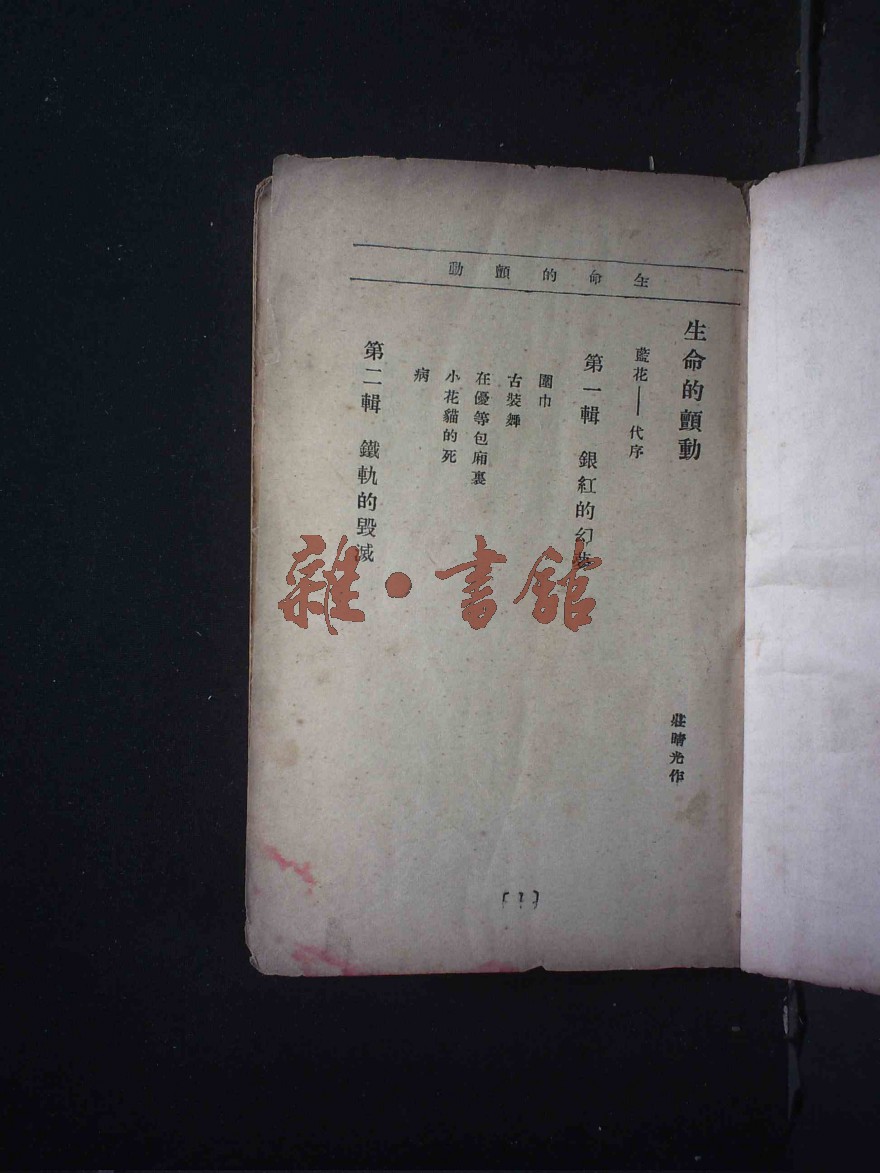 生命的顫動
生命的顫動
莊晴光作
藍花——代序
第一輯 銀紅的幻夢
圍巾
古裝舞
在優等包廂裏
小花貓的死
病
第二輯 鐵軌的毀滅
〔1〕
雜·書館